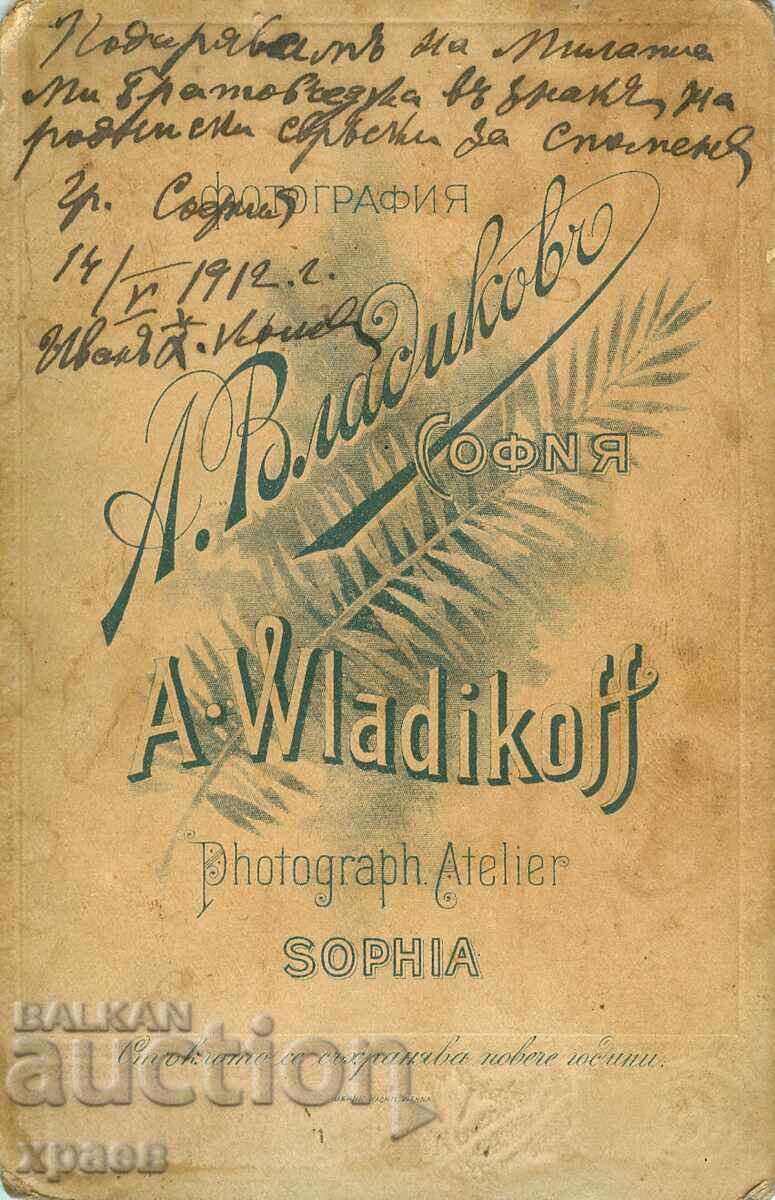 Подарявамъ на Милата
ми братовчедка въ знакъ на
роднински свръзки за споменъ
Гр. София
14/V 1912. г.
Иванъ Х.
ФОТОГРАФИЯ
А. Владиковъ
СОФИЯ
A. Wladikoff
Photograph. Atelier
SOPHIA
Стъклото се съхранява повече години.
BALKAN
auction
храев